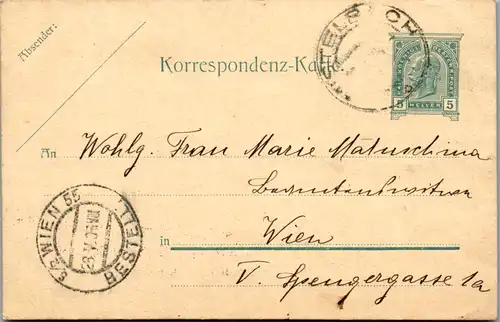 Absender:
Korrespondenz-Karte
5 HELLER 5
An Wohlg. Frau Marie Matuschina
Beamtenswitwe
in Wien
V. Spengergasse 1a
5/4 WIEN 55
BESTELLT